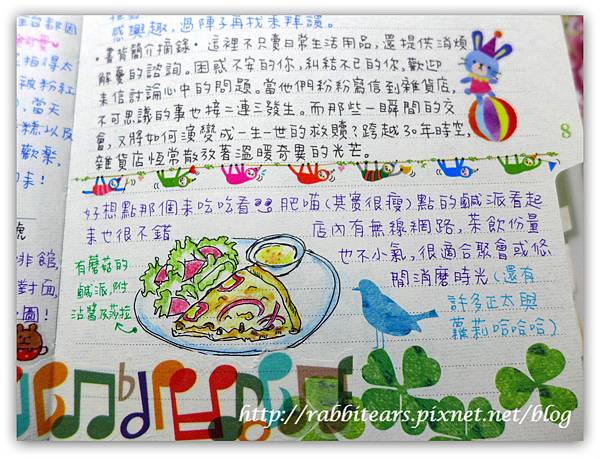 感興趣，過陣子再找來拜讀。
•書背簡介摘錄•這裡不只賣日常生活用品，還提供消煩
解憂的諮詢。困惑不安的你，糾結不已的你，歡迎
來信討論心中的問題。當他們紛紛寫信到雜貨店，
不可思議的事也接二連三發生。而那些一瞬間的交
會，又將如何演變成一生一世的救贖？跨越30年時空，
雜貨店恆常散放著溫暖奇異的光芒。
8
好想點那個來吃吃看 肥喵(其實很瘦)點的鹹派看起
來也很不錯
店內有無線網路，茶飲份量
也不小氣，很適合聚會或悠
閒消磨時光(還有
許多正太與
蘿莉哈哈哈)
有蘑菇的
鹹派，附
沾醬及莎拉
都因
拍得太
被粉紅
當天
糕以及
歡樂，
啡館，
對面，
圖！
http://rabbitears.pixnet.net/blog